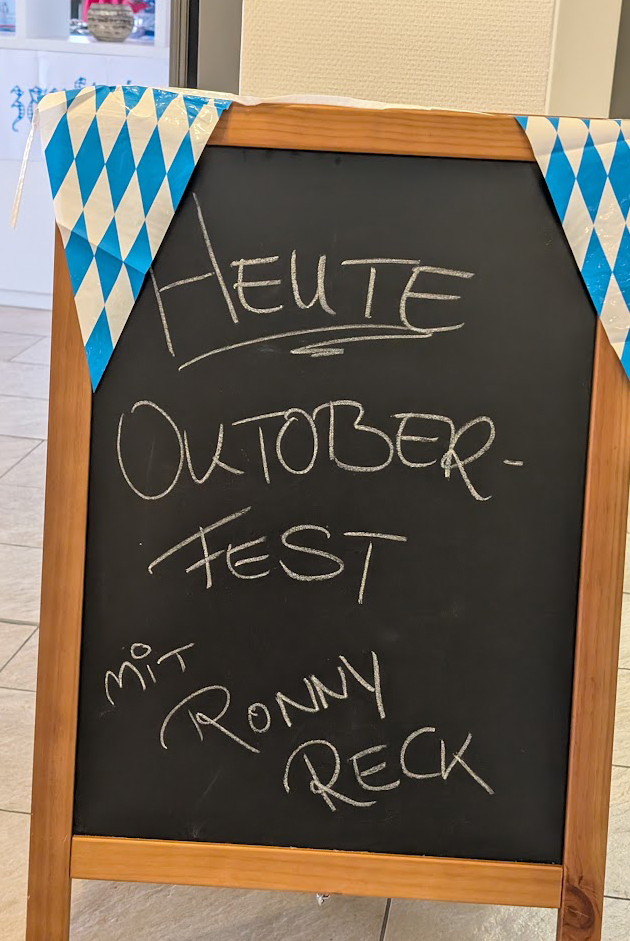 HEUTE
OKTOBER-
FEST
MIT
RONNY
RECK